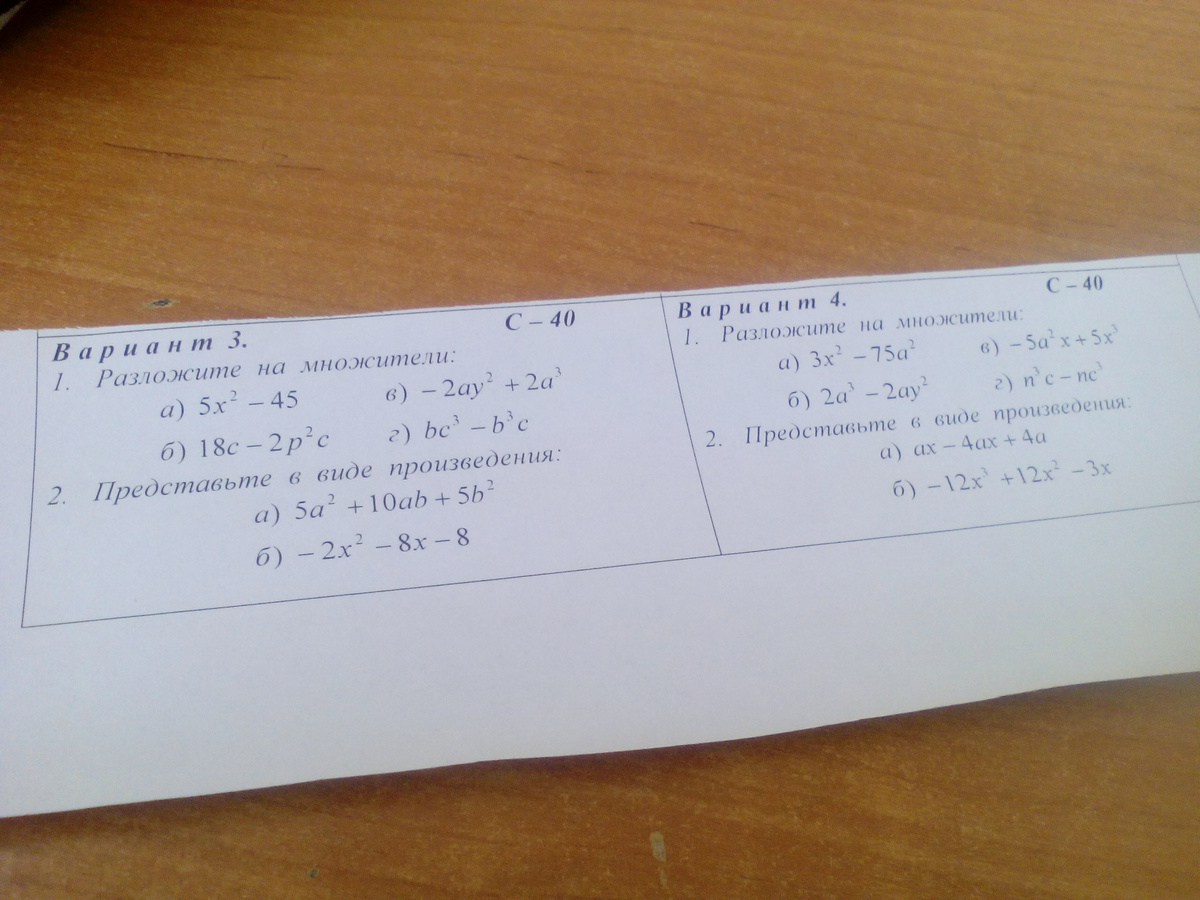 Вариант 3. С – 40
1. Разложите на множители:
а) 5x² – 45 в) – 2ay² + 2a³
б) 18c – 2p²c г) bc³ – b³c
2. Представьте в виде произведения:
а) 5a² + 10ab + 5b²
б) – 2x² – 8x – 8
Вариант 4. С – 40
1. Разложите на множители:
а) 3x² – 75a² в) – 5a²x + 5x³
б) 2a³ – 2ay² г) n³c – nc³
2. Представьте в виде произведения:
а) ax – 4ax + 4a
б) – 12x³ + 12x² – 3x